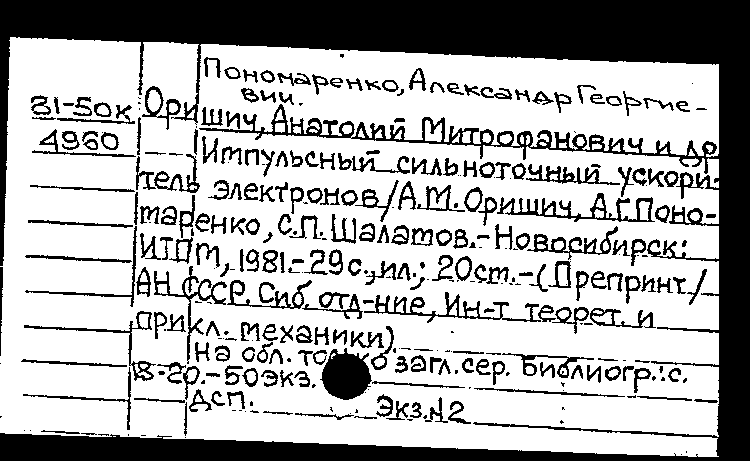 Пономаренко, Александр Георгие-
вич.
81-50к Оришич, Анатолий Митрофанович и др
4960 Импульсный сильноточный ускори-
тель электронов/А.М.Оришич, А.Г.Поно-
маренко, С.П.Шалатов.-Новосибирск:
ИТПМ, 1981.-29с., ил.; 20см.-(Препринт/
АН СССР. Сиб. отд-ние, Ин-т теорет. и
прикл. механики)
На обл. только загл.сер. Библиогр.: с.
18-20.-50экз.
Дсп. Экз.N2